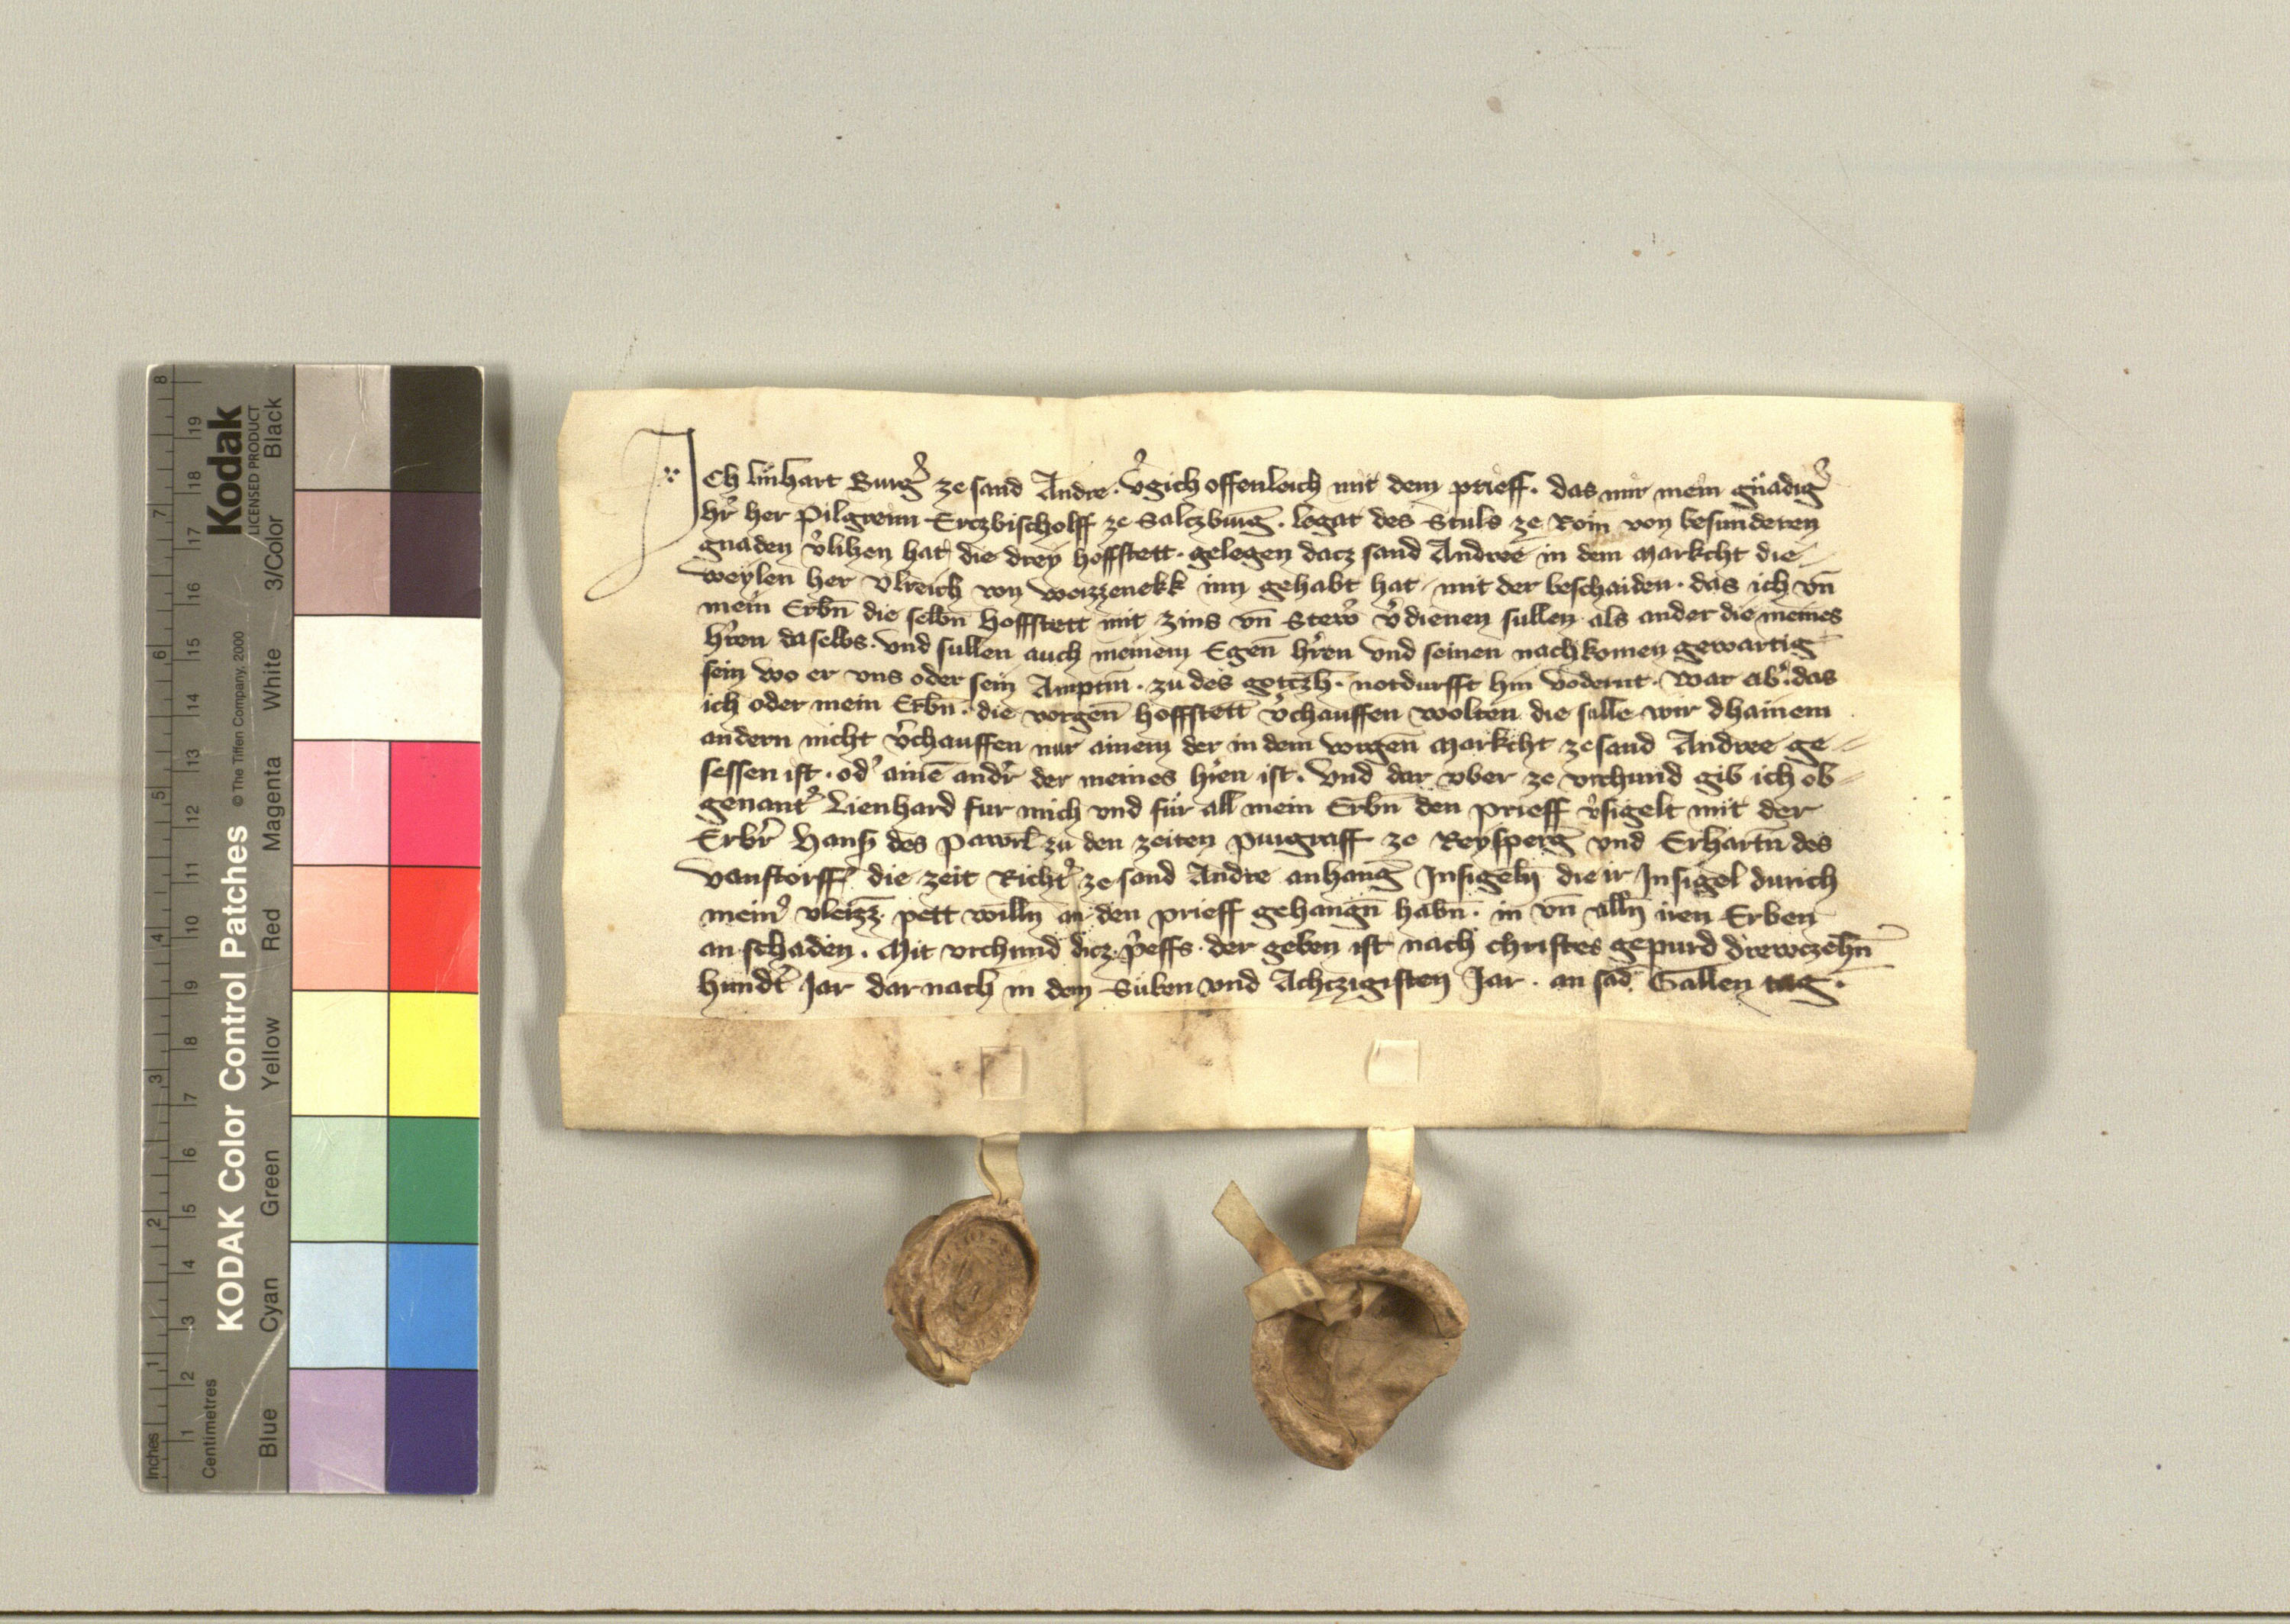 Ich linhart Burg̉ ze sand Andre. v̉gich offenleich mit dem prieff. das mir mein gnadig̉
hr̉ her Pilgreim Erczbischolff ze Salczburḡ. legat des Stuls ze Rom von besunderen
gnaden v̉lihen hat die drey hoffstett. gelegen dacz sand Andree in dem Markcht die
weylen her Vlreich von weizzenekk inn gehabt hat, mit der beschaiden. das ich vn̄
mein Erbn̄ die selbn̄ hoffstett mit zins vn̄ Stew̉ v̉dienen sullen als ander die meines
hr̉en daselbs. vnd sullen auch meinem Egen̄ hr̉en vnd seinen nachkomen gewartig
sein wo er vns oder sein Amptm̄. zu des gotczh̄. notdurfft hin vodernt. War ab̉. das
ich oder mein Erbn̄. die vorgen̄ hoffstett v̉chauffen wolten die sulle wir dhainem
andern nicht v̉chauffen nur ainem der in dem vorgen̄ Markcht ze sand Andree ge=
sessen ist. od̉ ainē andr̉ der meines hr̉en ist. Vnd dar vber ze vrchund gib ich ob=
genant̉ Lienhard fur mich vnd für all mein Erbn̄ den prieff v̉sigelt mit der
Erbr̉ Hans des Pawrl̄ zu den zeiten purgraff ze Reysperḡ vnd Erhartn̄ des
Vanstorff̉ die zeit Richt̉ ze sand Andre anhanḡ Insigeln̄ die ir Insigel durich
mein̉ vleizz̄. pett willn̄ an den prieff gehangn̄ habn̄. in vn̄ alln̄ iren Erben
an schaden. Mit vrchund dicz. p̉effs. der geben ist nach christes gepurd drewczehn̄
hundt̉ Jar dar nach in dem Siben vnd Achczigisten Jar. an sād Gallen tag.
Kodak
LICENSED PRODUCT
KODAK Color Control Patches
© The Tiffen Company, 2000
Blue Cyan Green Yellow Red Magenta White 3/Color Black
Inches 1 2 3 4 5 6 7 8
Centimetres 1 2 3 4 5 6 7 8 9 10 11 12 13 14 15 16 17 18 19